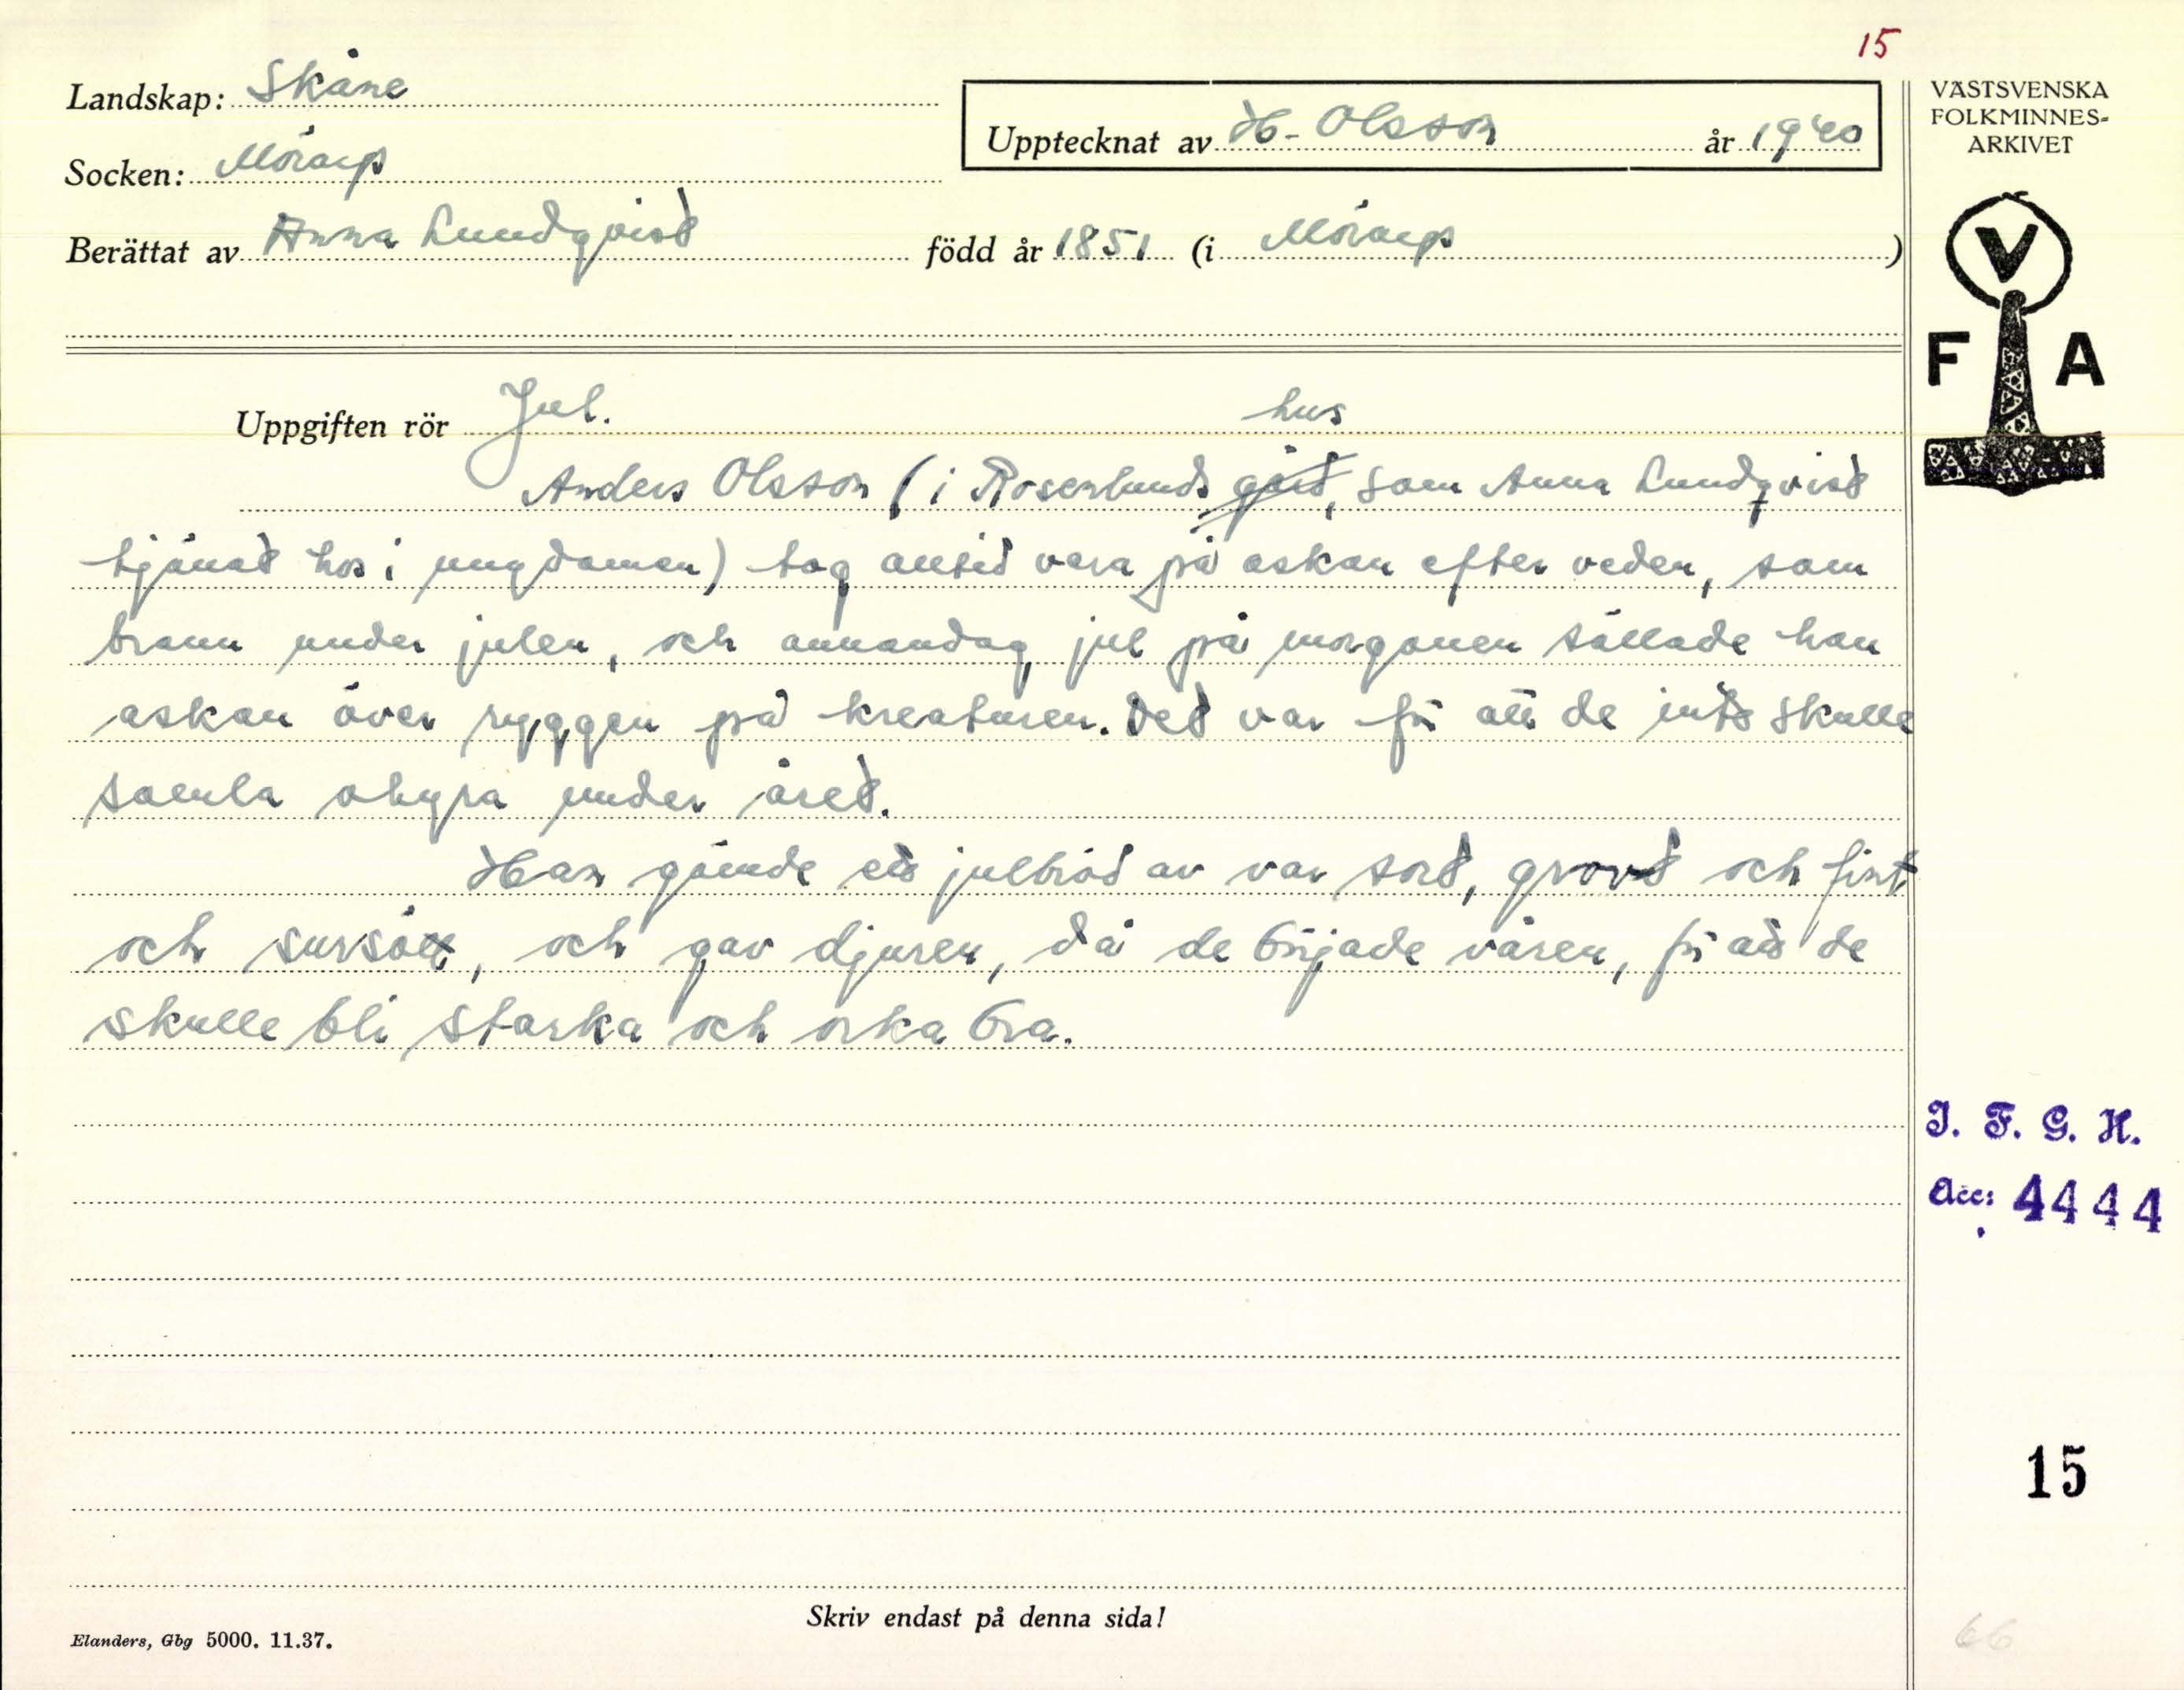 15
Landskap: Skåne
Upptecknat av H. Olsson år 1940
VÄSTSVENSKA
FOLKMINNES-
ARKIVET
Socken: Mörarp
Berättat av Anna Lundqvist född år 1851 (i Mörarp)
V
F A
Uppgiften rör Jul.
hus
Anders Olsson (i Rosenlunds gård, som Anna Lundqvist
tjänat hos i ungdomen) tog alltid vara på askan efter veden, som
brann under julen, och annandag jul på morgonen sållade han
askan över ryggen på kreaturen. Det var för att de inte skulle
samla ohyra under året.
Han gömde ett julbröd av var sort, grovt och fint
och sursött, och gav djuren, då de började våren, för att de
skulle bli starka och orka bra.
I. F. G. H.
Acc: 4444
15
Skriv endast på denna sida!
Elanders, Gbg 5000. 11.37.
66